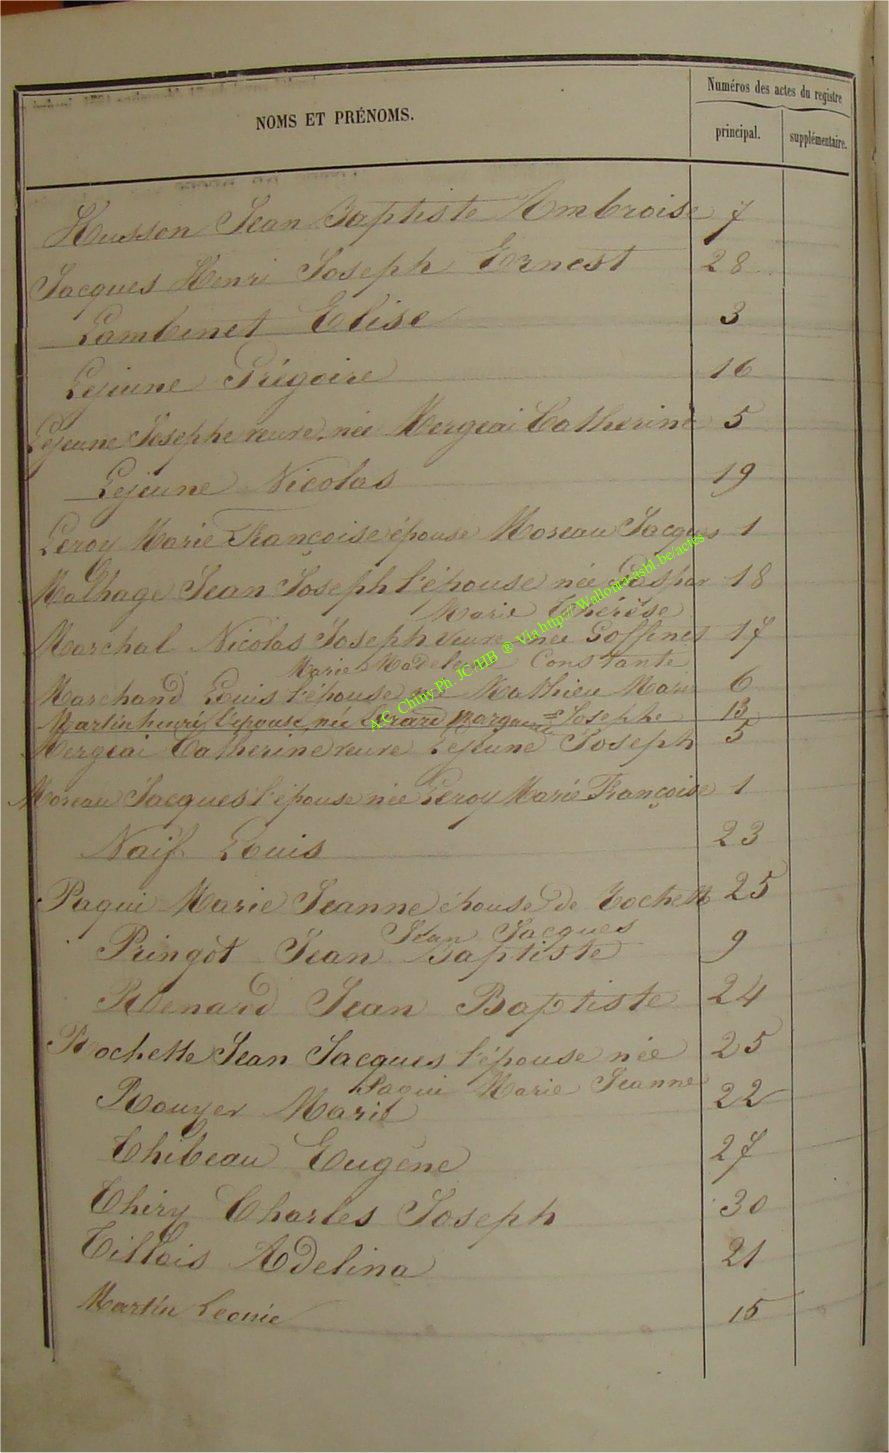 NOMS ET PRÉNOMS.
Numéros des actes du registre
principal. supplémentaire.
Husson Jean Baptiste Ambroise 7
Jacques Henri Joseph Ernest 28
Lambinet Elise 3
Lejeune Grégoire 16
Lejeune Josephe veuve née Mergeai Catherine 5
Lejeune Nicolas 19
Leroy Marie Françoise épouse Moreau Jacques 1
Malhage Jean Joseph l'épouse née Gaspar 18
Marie Thérèse
Marchal Nicolas Joseph veuve née Goffinet 17
Marie Madeleine Constante
Marchand Louis l'épouse née Mathieu Marie 6
Martin henri l'épouse née Evrard Josephe 13
Mergeai Catherine veuve Lejeune Joseph 5
Moreau Jacques l'épouse née Leroy Marie Françoise 1
Naif Louis 23
Paqui Marie Jeanne épouse de Rochette 25
Jean Jacques
Pringot Jean Baptiste 9
Renard Jean Baptiste 24
Rochette Jean Jacques l'épouse née 25
Paqui Marie Jeanne
Rouyer Marie 22
Thibeau Eugène 27
Thiry Charles Joseph 30
Tillois Adelina 21
Martin Leonie 15
A.C. Chiny Ph. JC HB ® Via http://Wallonia-asbl.be/actes